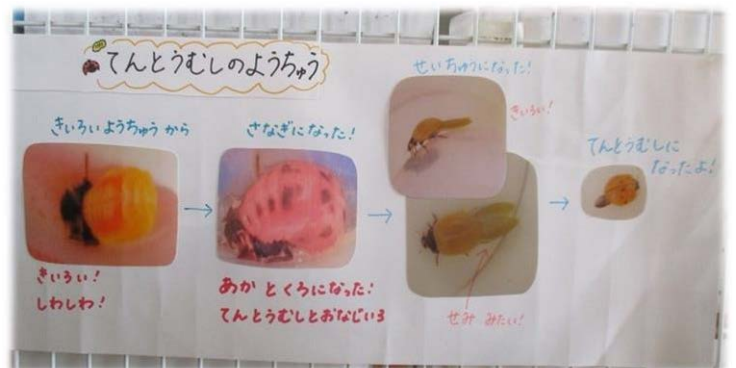 てんとうむしのようちゅう
きいろいようちゅうから
きいろい!
しわしわ!
さなぎになった!
あかとくろになった!
てんとうむしとおなじいろ
せいちゅうになった!
きいろい!
せみみたい!
てんとうむしに
なったよ!